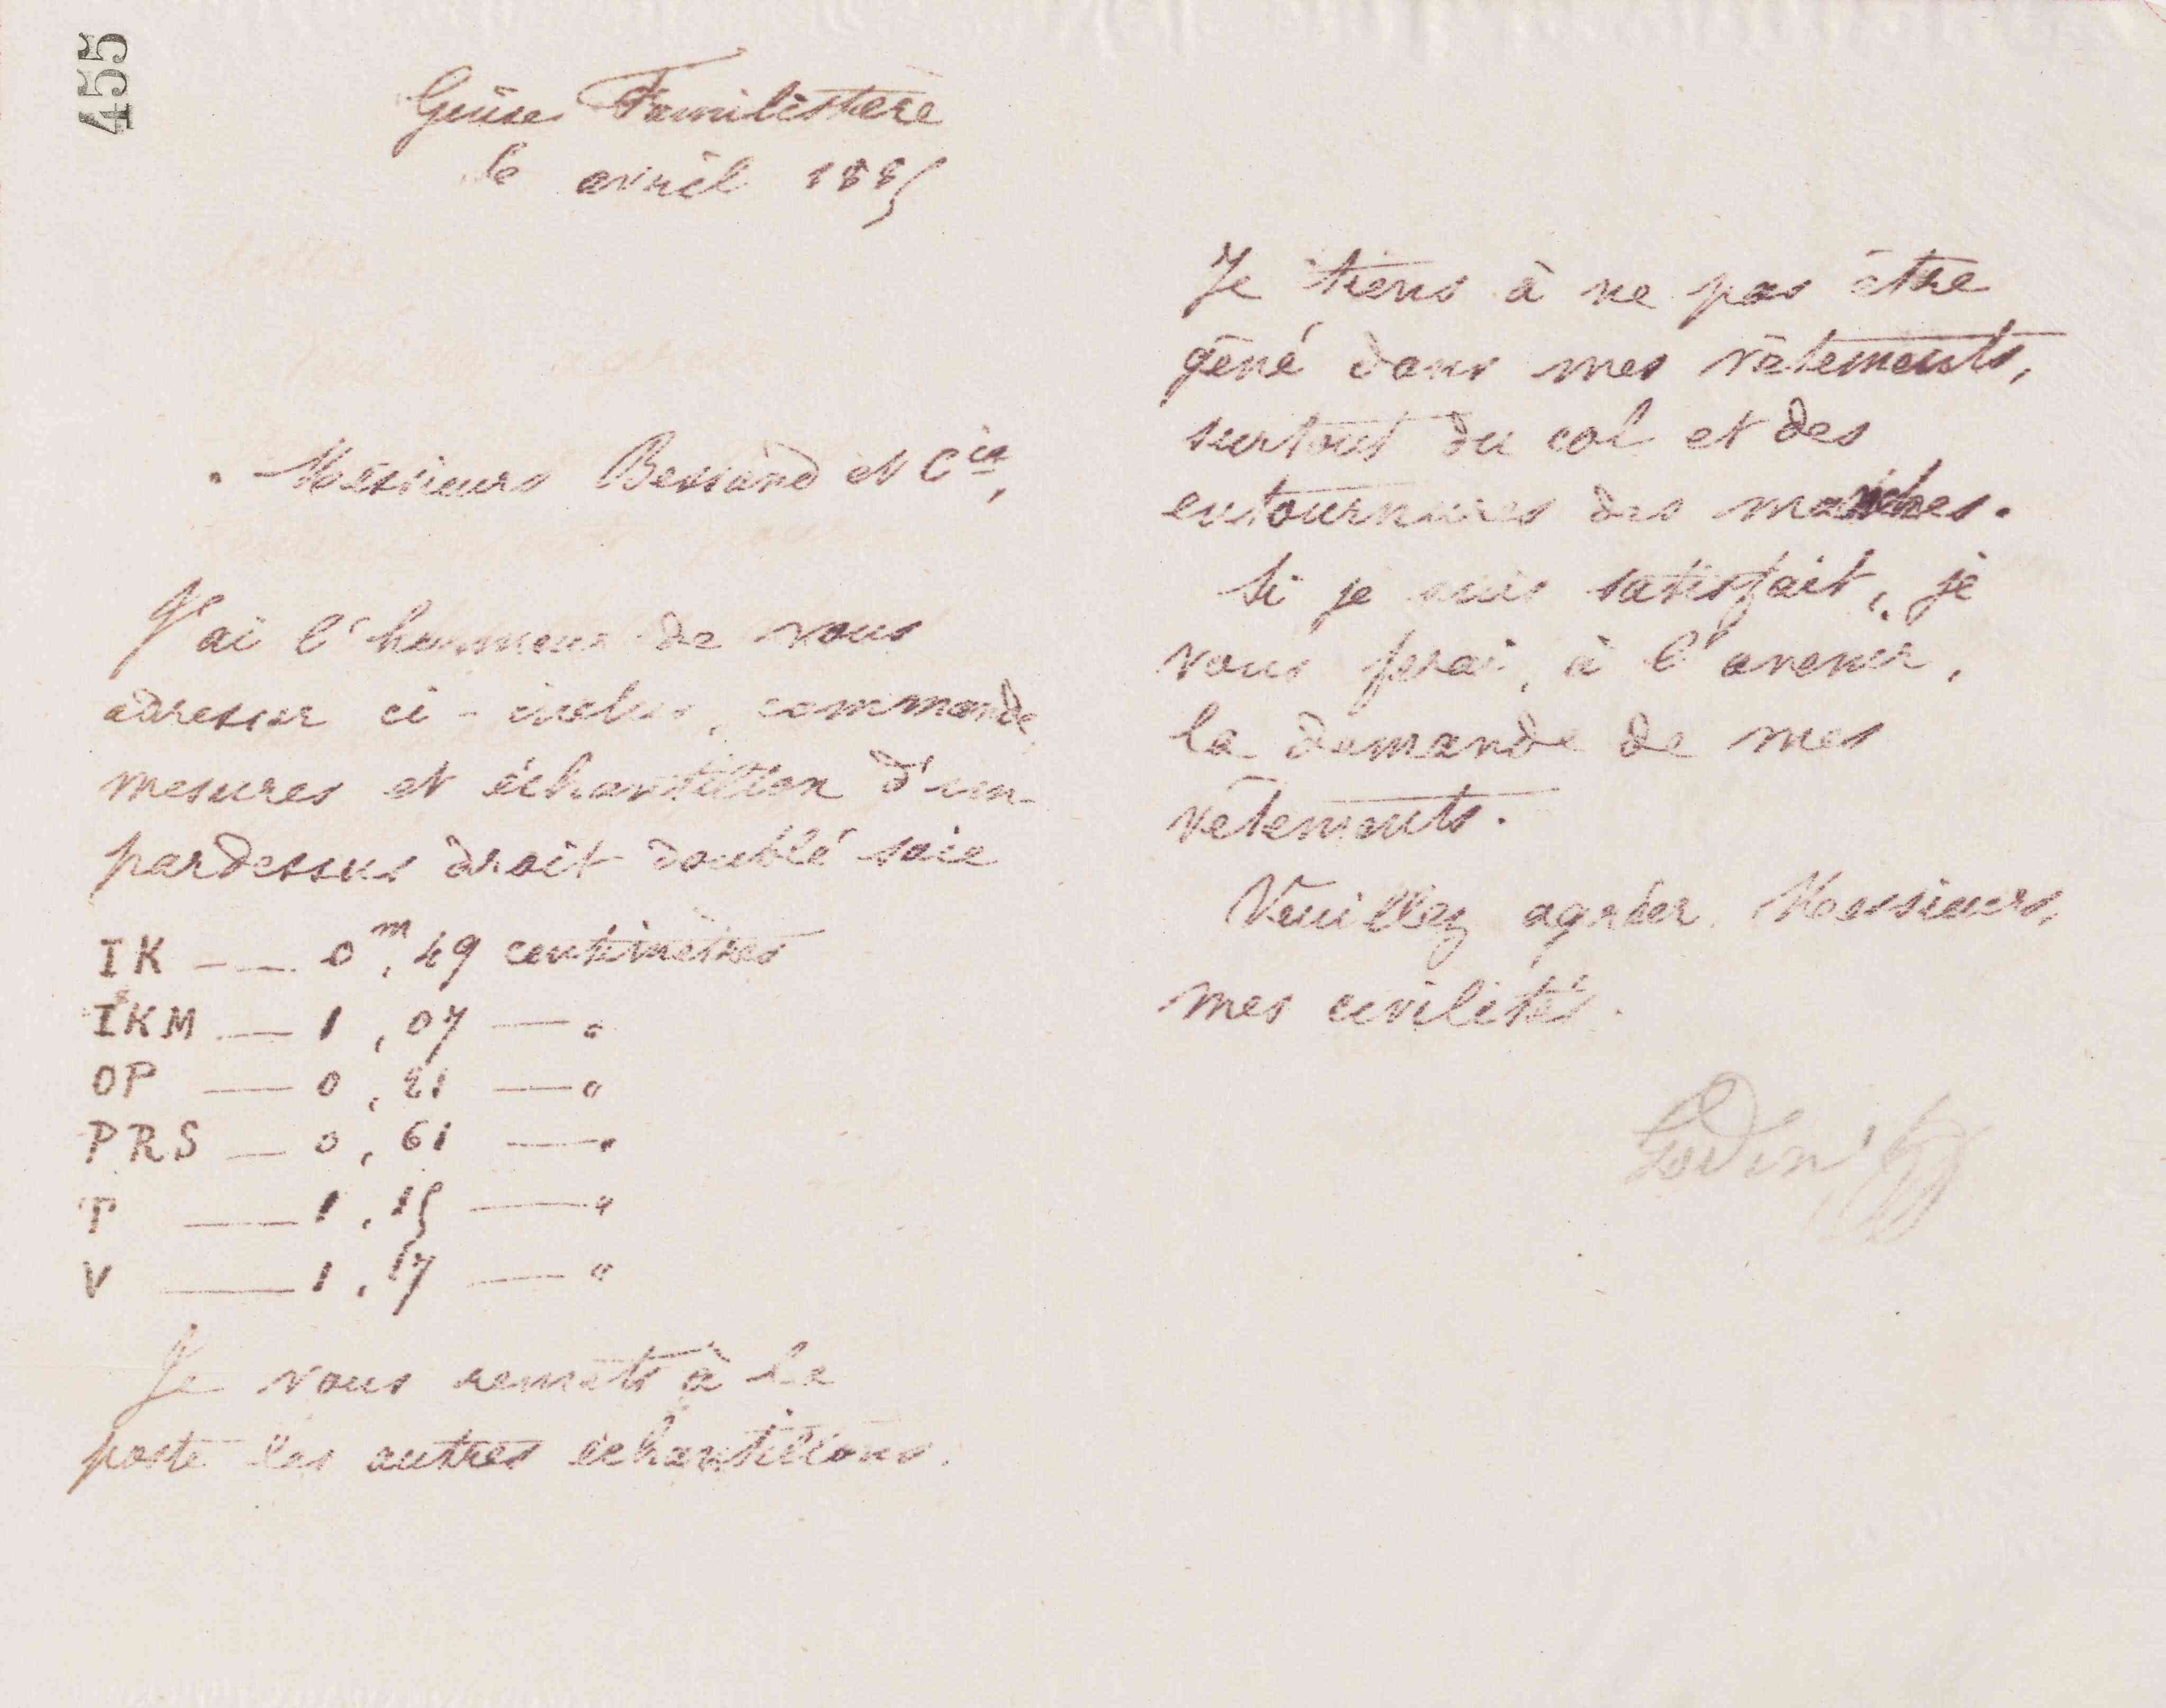 455
Guise Familistère
le avril 1885
Messieurs Bessand et Cie,
J'ai l'honneur de vous
adresser ci-inclus, commande,
mesures et échantillon d'un
pardessus droit doublé soie
IK — 0m,49 centimètres
IKM — 1,07 — "
OP — 0,21 — "
PRS — 0,61 — "
T — 1,15 — "
V — 1,17 — "
Je vous remets à la
poste les autres échantillons.
Je tiens à ne pas être
gêné dans mes vêtements,
surtout du col et des
entournures des manches.
Si je suis satisfait, je
vous ferai, à l'avenir,
la demande de mes
vêtements.
Veuillez agréer, Messieurs,
mes civilités.
Godin